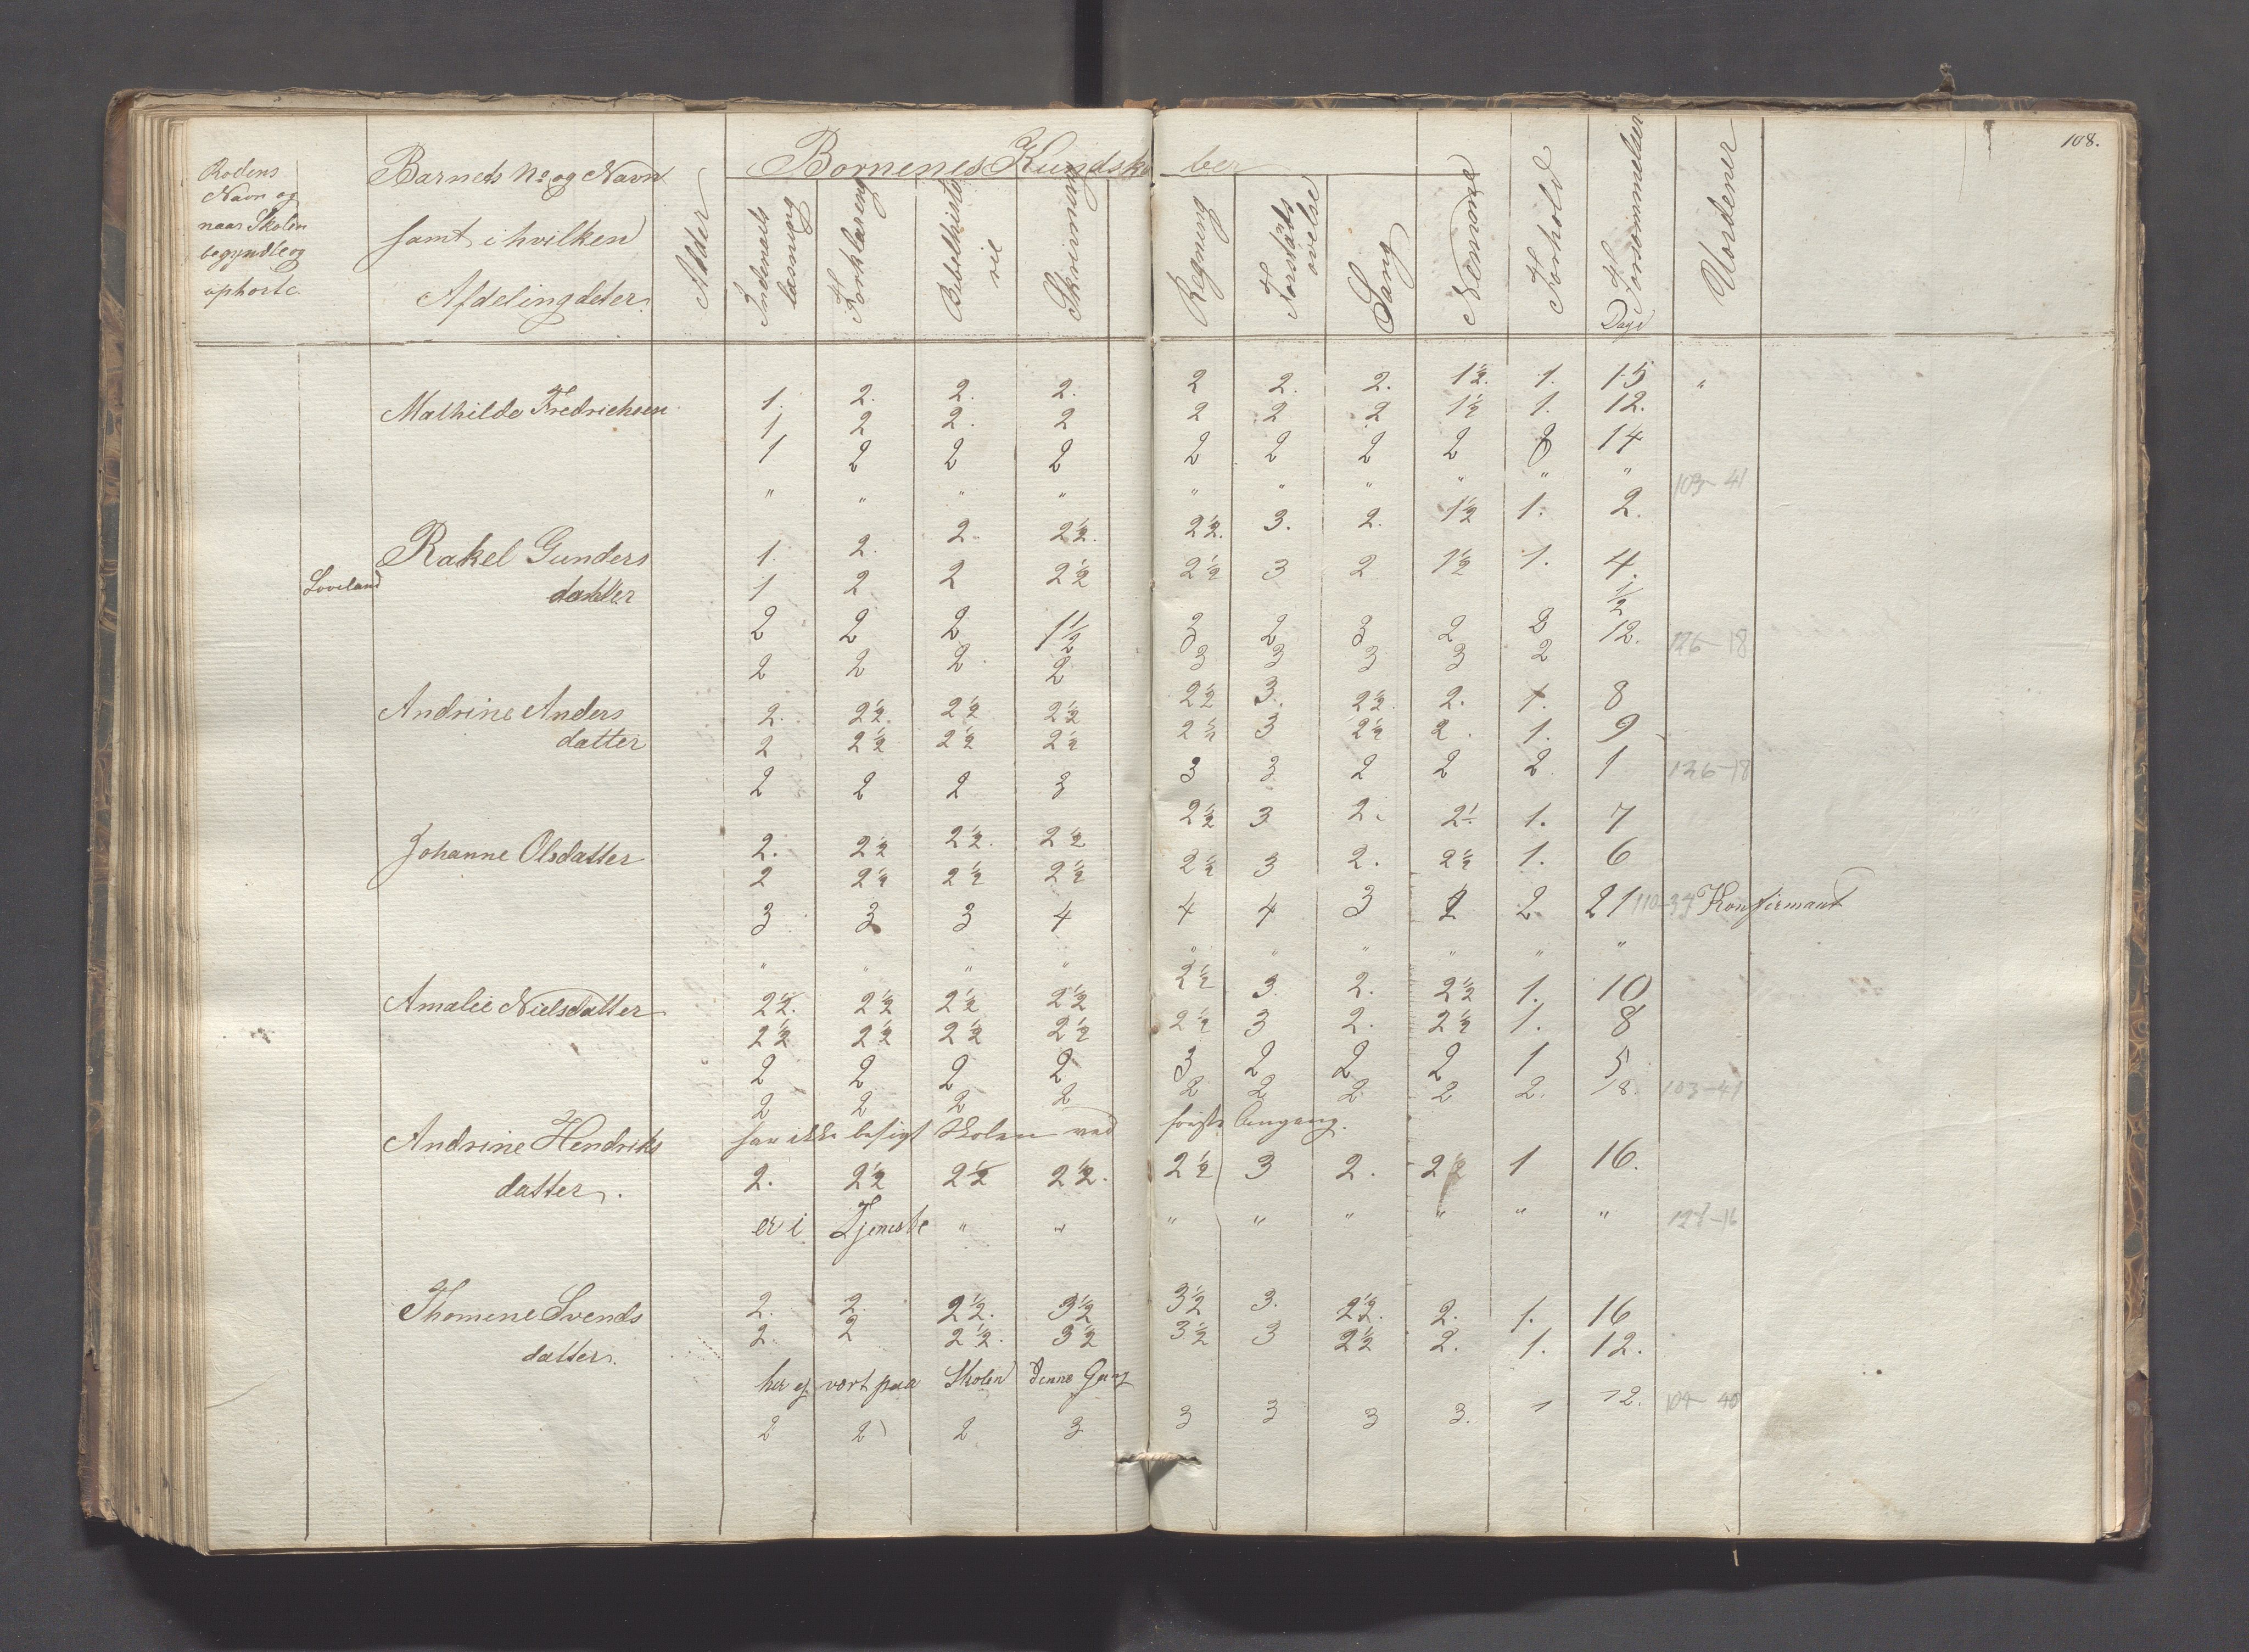 108.
Rodens
Navn og
naar Skolen
begyndte og
ophorte.
Barnets No og Navn
samt i hvilken
Afdeling det er.
Alder
Bornenes Kundskaber
Indenads
læsning
Forklaring
Bibelhisto
rie
Skrivning
Regning
Forstáds
øvelse
Sang
Nemme
Forhold
Forsømmelser
Dage
Uordener
Mathilde Fredrichsen 1. 2. 2. 2. 2 2. 2. 1½. 1. 15 "
1 2 2. 2 2 2 2 1½ 1. 12.
1 2 2 2 2 2 2 2 2 14
" " " " " " " " " " 103-41
Rakel Gunders 1. 2. 2. 2½. 2½. 3. 2. 1½ 1. 2.
Loveland datter 1 2 2 2½ 2½ 3 2 1½ 1. 4.
½
2 2 2 1½ 3 2 3 2 2 12. 126-18
2 2 2. 2 3 3 3 3 2
Andrine Anders 2. 2½. 2½ 2½ 2½ 3. 2½. 2. 1. 8
datter 2 2½ 2½ 2½ 2½ 3 2½ 2. 1. 9
2 2 2 3 3 3 2 2 2 1 126-18
Johanne Olsdatter 2. 2½ 2½. 2½ 2½ 3 2. 2½ 1. 7
2 2½ 2½ 2½ 2½ 3 2. 2½ 1. 6
3 3 3 4 4 4 3 2 2. 21 Konfirmant
" " " " " " " " " "
Amalie Nielsdatter 2½. 2½ 2½ 2½ 2½ 3. 2. 2½ 1. 10
2½ 2½ 2½ 2½ 2½ 3 2. 2½ 1. 8
2 2 2 2 3 2 2 2 1 5
2 2 2 2 2 2 2 2 2. 18. 103-41
Andrine Hendriks har ikke besøgt Skolen ved første Omgang.
datter. 2. 2½ 2½ 2½. 2½ 3 2. 2½ 1 16.
er i Tjeneste " " " " " " " "
Thomene Svends 2. 2. 2½. 3½ 3½ 3. 2½. 2. 1. 16
datter. 2. 2 2½. 3½ 3½ 3 2½ 2. 1. 12.
har ej vært paa Skolen denne Gang
2 2 2 3 3 3 3 3. 1 12. 104-40